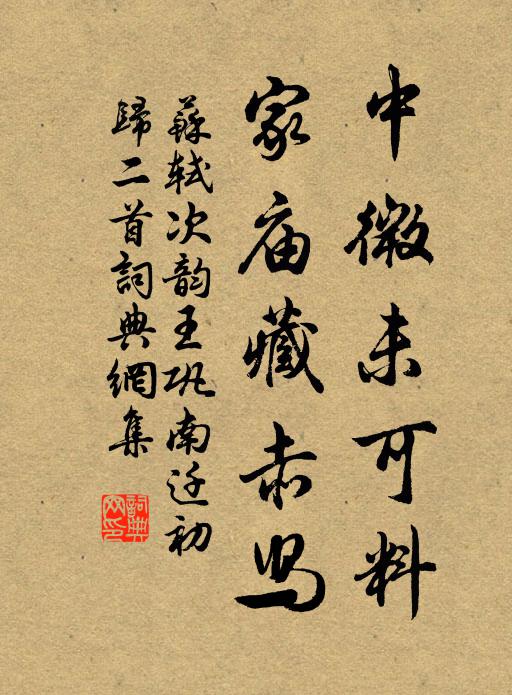 中微未可料
家庙藏赤舄
蘇軾次韵王巩南迁初
歸二首詞典網集
詞典
网印